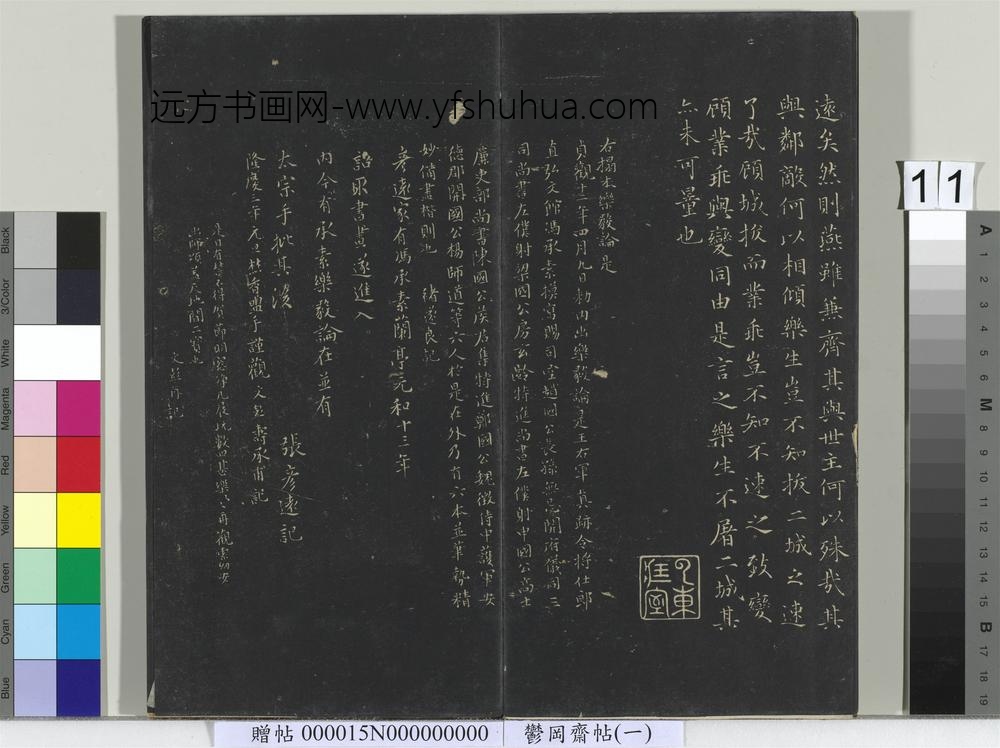 远方书画网-www.yfshuhua.com
遠矣然則燕雖兼齊其與世主何以殊哉其
與鄰敵何以相傾樂生豈不知拔二城之速
了哉顧城拔而業乖豈不知不速之致變
顧業乖與變同由是言之樂生不屠二城其
亦未可量也
右搨本樂毅論是
貞觀十三年四月九日勅內出樂毅論是王右軍真跡令將仕郎
直弘文館馮承素摸寫賜司空趙國公長孫無忌開府儀同三
司尚書左僕射梁國公房玄齡特進尚書左僕射申國公高士
廉吏部尚書陳國公侯君集特進鄭國公魏徵侍中護軍安
德郡開國公楊師道等六人於是在外乃有六本並筆勢精
妙備盡楷則也 褚遂良記
彥遠家有馮承素蘭亭元和十三年
詔取書畫遂進入
內今有承素樂毅論在並有
太宗手批其後 張彥遠記
隆慶三年元旦焚香盥手謹觀
文彭再記
11
Black
3/Color
White
Magenta
Red
Yellow
Green
Cyan
Blue
A
1
2
3
4
5
6
M
8
9
10
11
12
13
14
15
B
17
18
19
贈帖 000015N000000000 鬱岡齋帖(一)